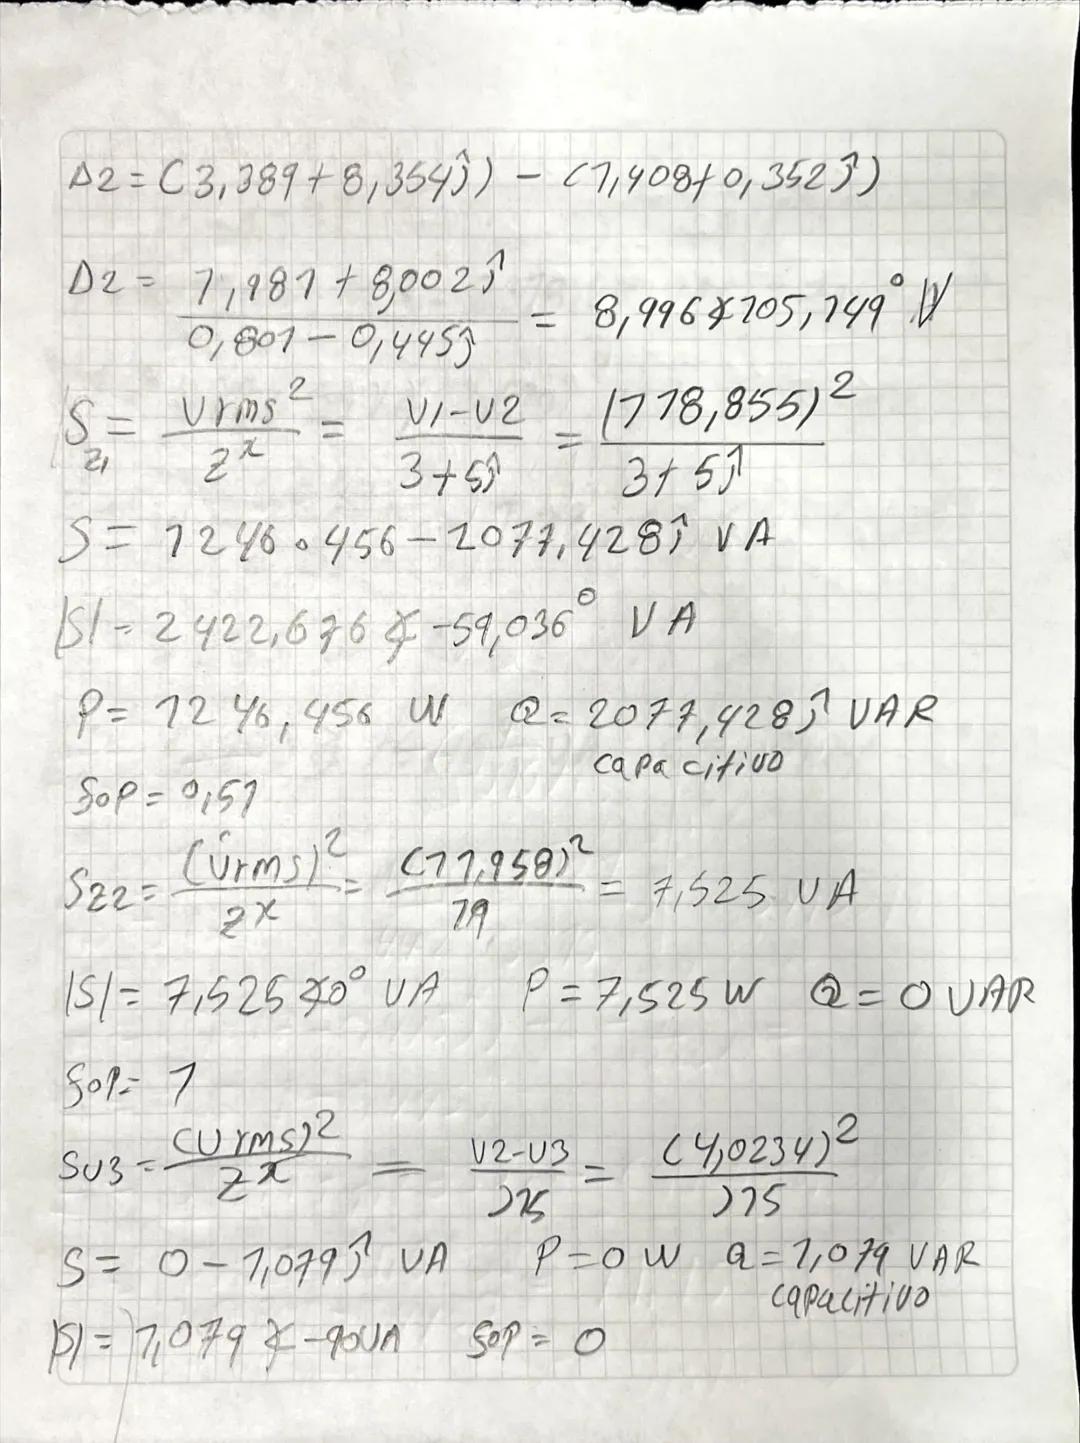 Δ2 = (3,389 + 8,354ĵ) - (1,408 + 0,352ĵ)
Δ2 = (1,981 + 8,002ĵ) / (0,801 - 0,445ĵ) = 8,996∡105,149° V
S_Z1 = Vrms² / Z* = V1-V2 / 3+5ĵ = (118,855)² / 3+5ĵ
S = 1246.456 - 2077,428ĵ VA
|S| = 2422,676∡-59,036° VA
P = 1246,456 W Q = 2077,428ĵ VAR
capacitivo
foP = 0,51
SZ2 = (Vrms)² / Z* = (11,958)² / 19 = 7,525 VA
|S| = 7,525∡0° VA P = 7,525 W Q = 0 VAR
foP = 1
SV3 = (Vrms)² / Z* = V2-V3 / J15 = (4,0234)² / J15
S = 0 - 1,079ĵ VA P = 0 W Q = 1,079 VAR
capacitivo
|S| = 1,079∡-90 VA foP = 0